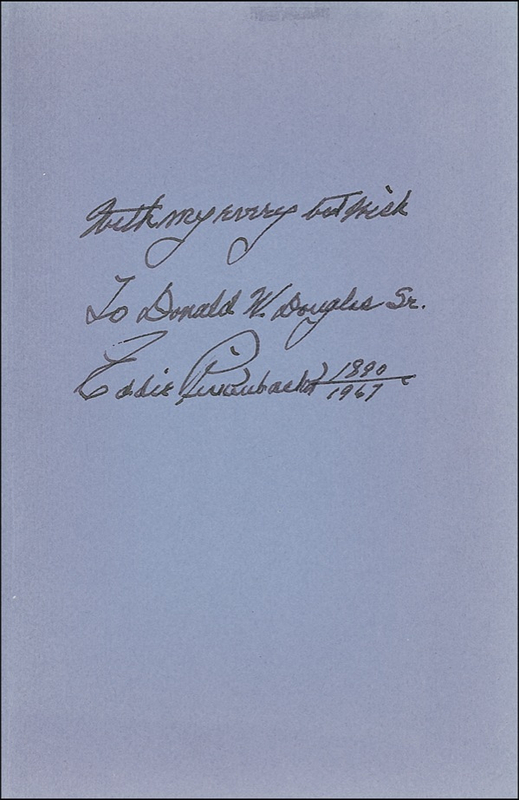 With my every best wish
To Donald W. Douglas Sr.
Eddie Rickenbacker 1890
1967